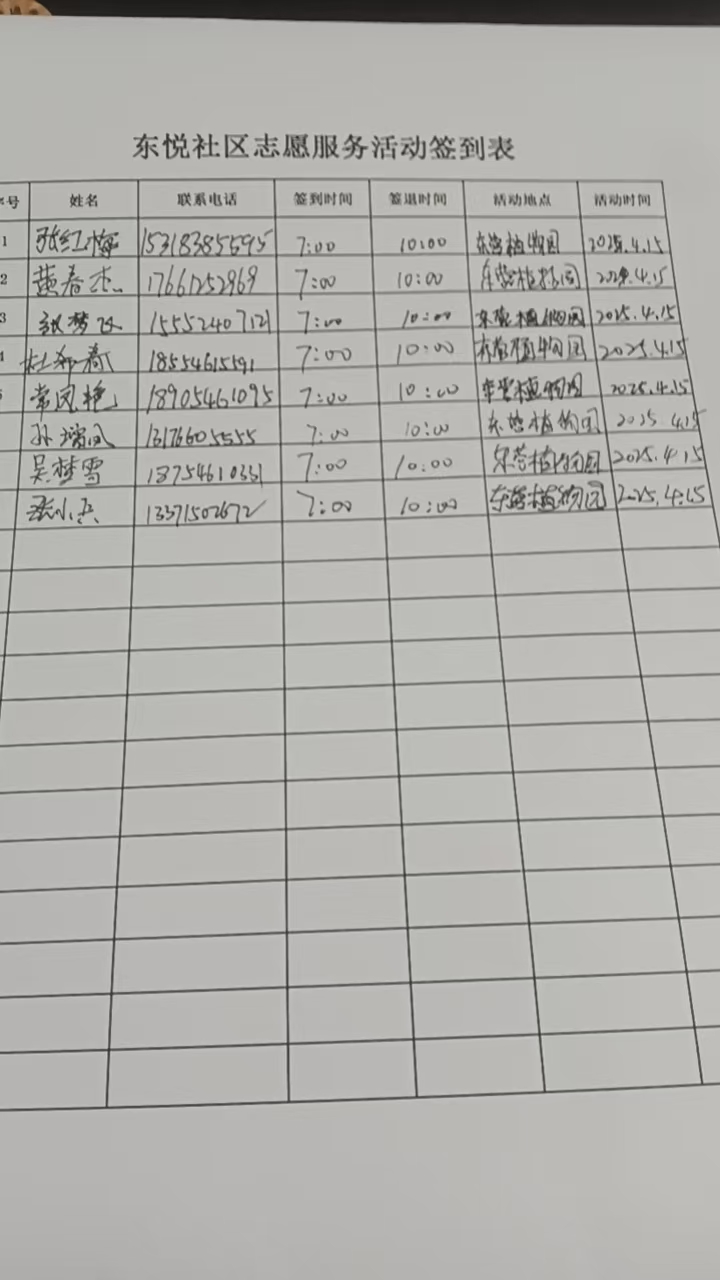 东悦社区志愿服务活动签到表
号 姓名 联系电话 签到时间 签退时间 活动地点 活动时间
1 张红梅 15318385595 7:00 10:00 东营植物园 2025.4.15
2 黄春杰 17661252969 7:00 10:00 东营植物园 2025.4.15
3 张梦 15552407121 7:00 10:00 东营植物园 2025.4.15
杜春 18554615591 7:00 10:00 东营植物园 2025.4.15
常凤艳 18905461095 7:00 10:00 东营植物园 2025.4.15
孙瑞凤 13176605555 7:00 10:00 东营植物园 2025 4.15
吴梦雪 13754610331 7:00 10:00 东营植物园 2025.4.15
小兵 13371502672 7:00 10:00 东营植物园 2025.4.15